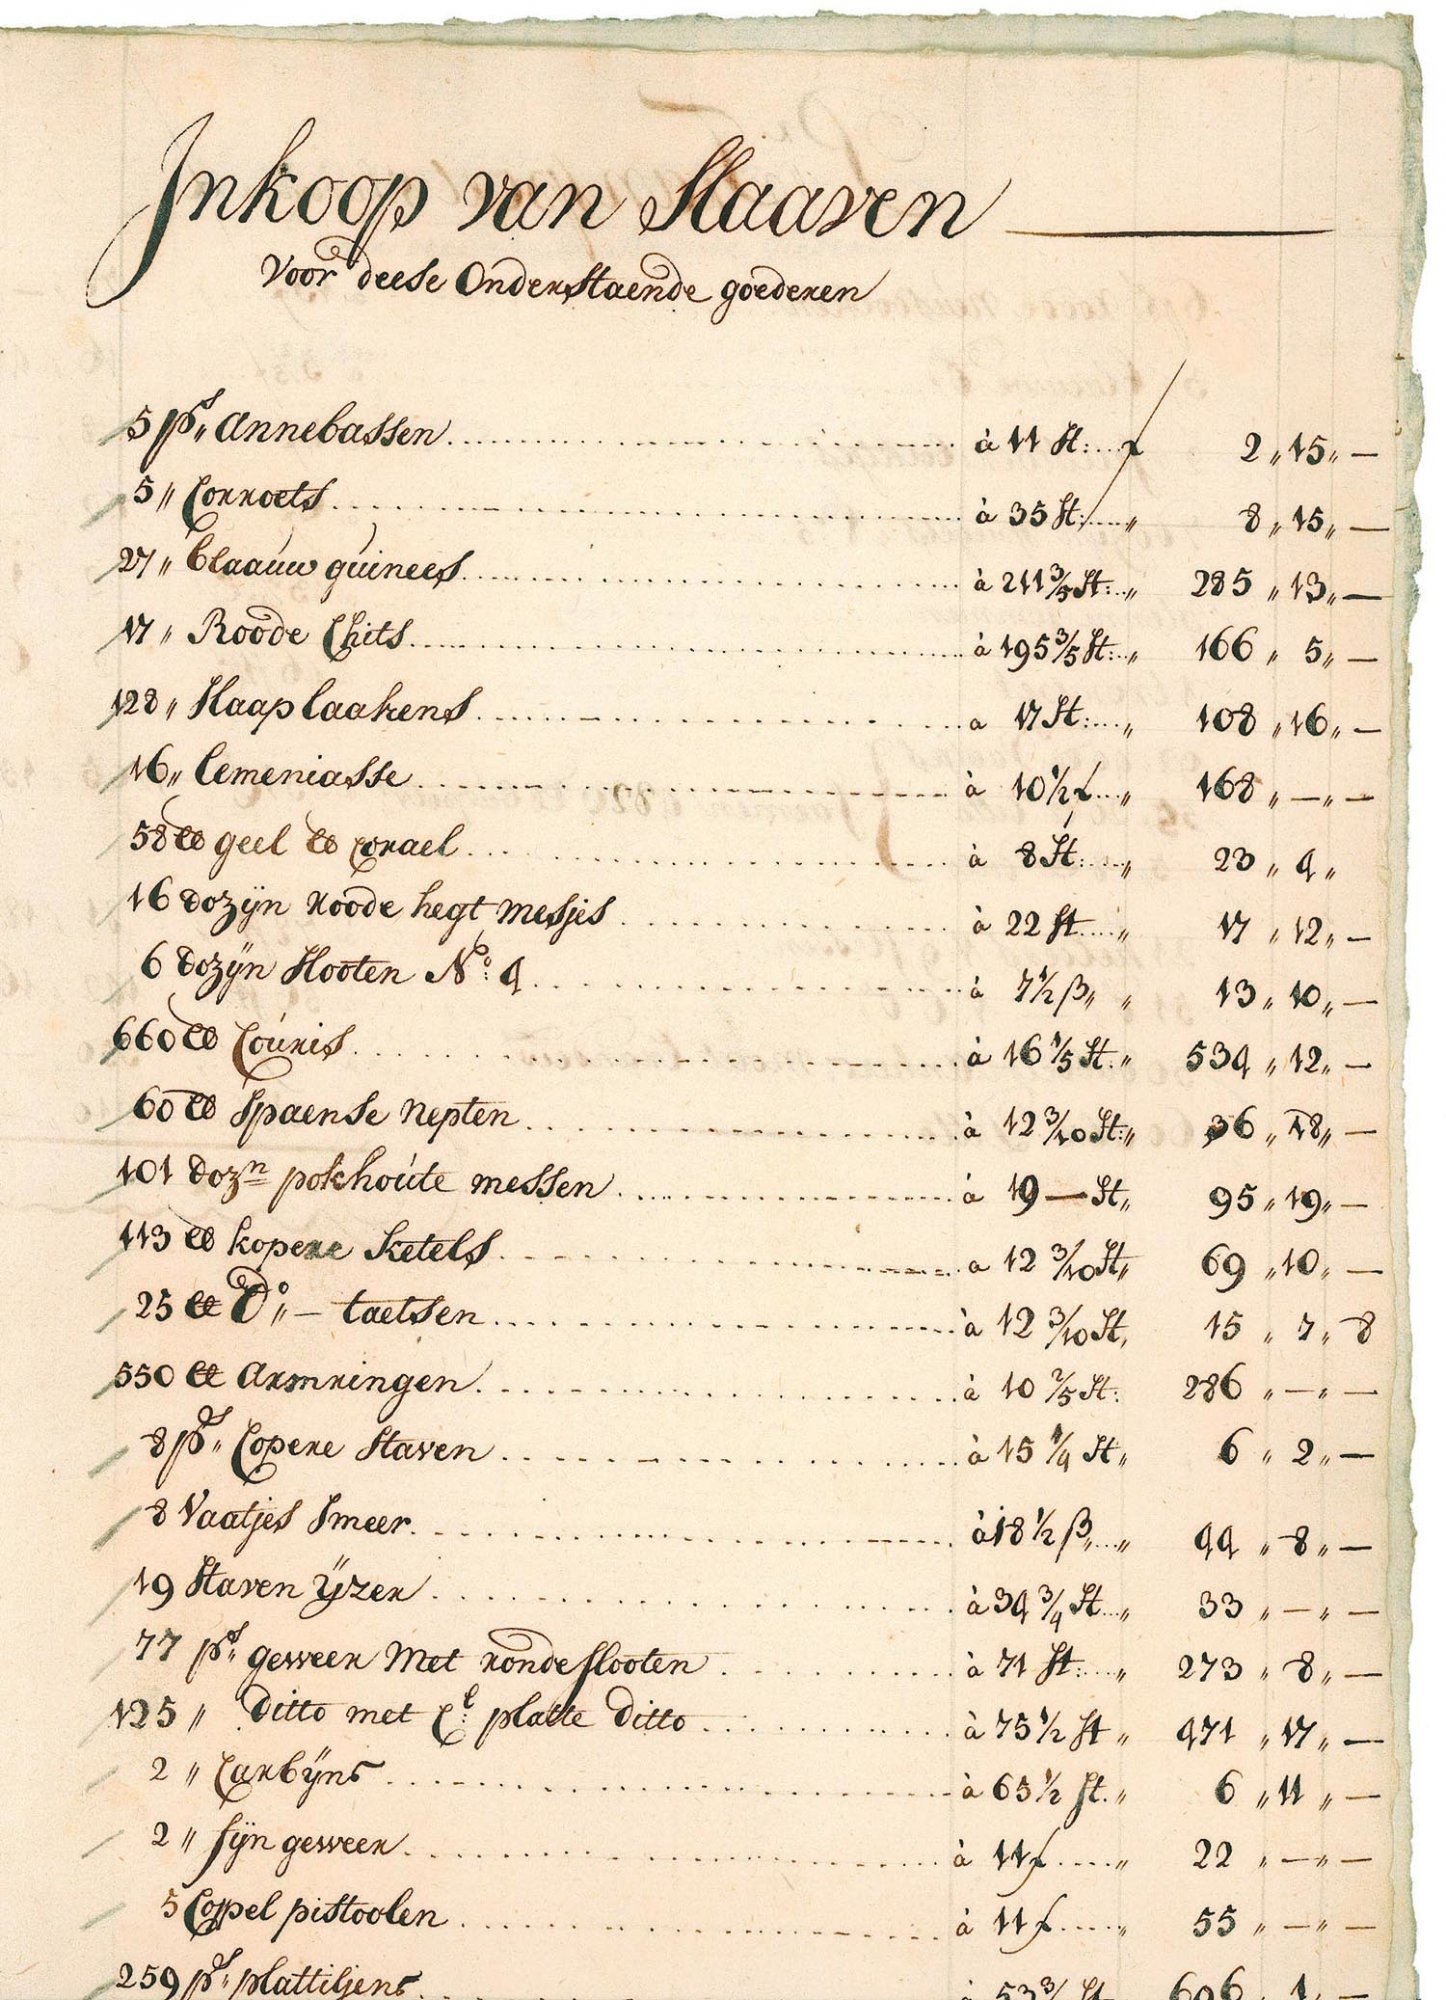 Inkoop van Slaaven
Voor deese Onderstaende goederen
5 ps„ Annebassen à 11 St: ƒ 2 „ 15 „ —
5 „ Corroets à 35 St: „ 8 „ 15 „ —
27 „ blaauw guinees à 211 3/5 St: „ 285 „ 13 „ —
17 „ Roode Chits à 195 3/5 St: „ 166 „ 5 „ —
128 „ Slaaplaakens a 17 St: „ 108 „ 16 „ —
16 „ Cemeniasse à 10 1/2 ƒ „ 168 „ — „ —
58 ℔ geel ℔ Corael à 8 St: „ 23 „ 4 „
16 dozijn roode hegt mesjes à 22 St „ 17 „ 12 „ —
6 dozijn Slooten No: 4 à 7 1/2 β „ „ 13 „ 10 „ —
660 ℔ Couris à 16 1/5 St. „ 534 „ 12 „ —
60 ℔ Spaense nepten à 12 3/10 St: „ 36 „ 18 „ —
101 dozn pokhoute messen à 19 — St „ 95 „ 19 „ —
113 ℔ kopere ketels a 12 3/10 St „ 69 „ 10 „ —
25 ℔ Do „ — taetsen à 12 3/10 St, 15 „ 7 „ 8
550 ℔ Armringen à 10 2/5 St: 286 „ — „ —
8 ps „ Copere Staven à 15 1/4 St „ 6 „ 2 „ —
8 Vaatjes Smeer à 18 1/2 β „ „ 44 „ 8 „ —
19 Staven ijzer à 34 3/4 St „ 33 „ — „ —
77 ps „ geweer Met ronde slooten à 71 St: „ 273 „ 8 „ —
125 „ Ditto met platte Ditto à 75 1/2 St „ 471 „ 17 „ —
2 „ Carbijns à 65 1/2 St. „ 6 „ 11 „ —
2 „ fijn geweer à 11 ƒ „ 22 „ — „ —
5 Coppel pistoolen à 11 ƒ „ 55 „ — „ —
259 ps „ plattiljens à 53 3/ St 696 „ 1 „ —